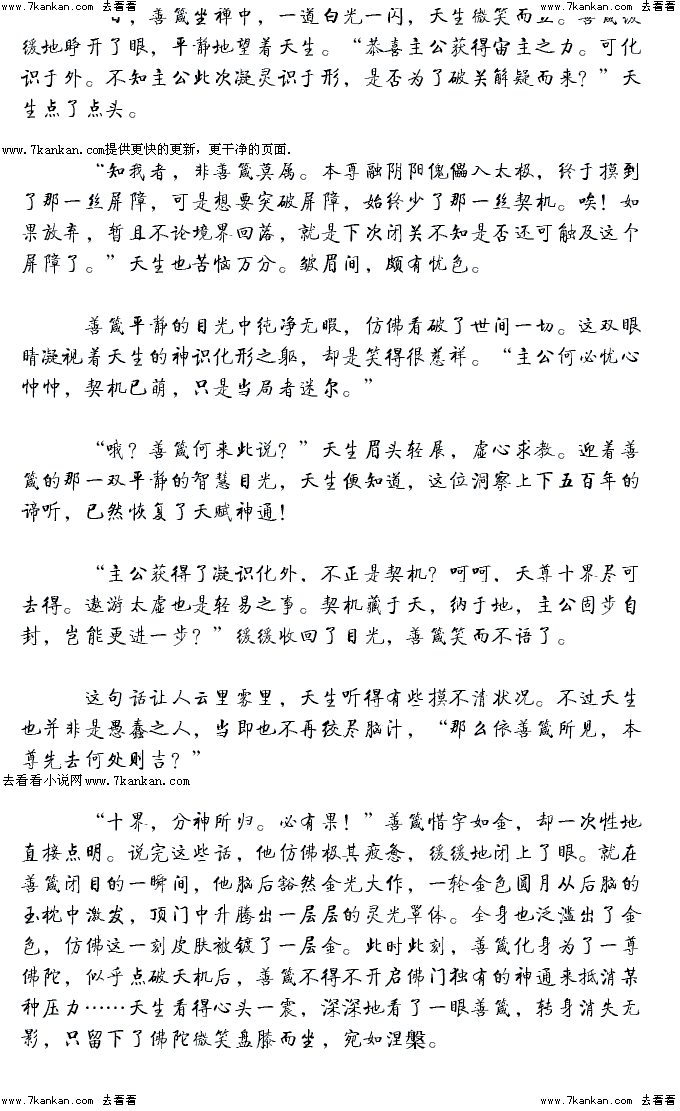 www.7kankan.com 去看看 www.7kankan.com 去看看
，善箴坐禅中，一道白光一闪，天生微笑而立。善箴缓
缓地睁开了眼，平静地望着天生。“恭喜主公获得宙主之力。可化
识于外。不知主公此次凝灵识于形，是否为了破关解疑而来？”天
生点了点头。
www.7kankan.com提供更快的更新，更干净的页面.
“知我者，非善箴莫属。本尊融阴阳傀儡入太极，终于摸到
了那一丝屏障，可是想要突破屏障，始终少了那一丝契机。唉！如
果放弃，暂且不论境界回落，就是下次闭关不知是否还可触及这个
屏障了。”天生也苦恼万分。皱眉间，颇有忧色。
善箴平静的目光中纯净无暇，仿佛看破了世间一切。这双眼
睛凝视着天生的神识化形之躯，却是笑得很慈祥。“主公何必忧心
忡忡，契机已萌，只是当局者迷尔。”
“哦？善箴何来此说？”天生眉头轻展，虚心求教。迎着善
箴的那一双平静的智慧目光，天生便知道，这位洞察上下五百年的
谛听，已然恢复了天赋神通！
“主公获得了凝识化外，不正是契机？呵呵，天尊十界尽可
去得。遨游太虚也是轻易之事。契机藏于天，纳于地，主公固步自
封，岂能更进一步？”缓缓收回了目光，善箴笑而不语了。
这句话让人云里雾里，天生听得有些摸不清状况。不过天生
也并非是愚蠢之人，当即也不再绞尽脑汁，“那么依善箴所见，本
尊先去何处则吉？”
去看看小说网www.7kankan.com
“十界，分神所归。必有果！”善箴惜字如金，却一次性地
直接点明。说完这些话，他仿佛极其疲惫，缓缓地闭上了眼。就在
善箴闭目的一瞬间，他脑后豁然金光大作，一轮金色圆月从后脑的
玉枕中激发，顶门中升腾出一层层的灵光罩体。全身也泛滥出了金
色，仿佛这一刻皮肤被镀了一层金。此时此刻，善箴化身为了一尊
佛陀，似乎点破天机后，善箴不得不开启佛门独有的神通来抵消某
种压力……天生看得心头一震，深深地看了一眼善箴，转身消失无
影，只留下了佛陀微笑盘膝而坐，宛如涅槃。
www.7kankan.com 去看看 www.7kankan.com 去看看